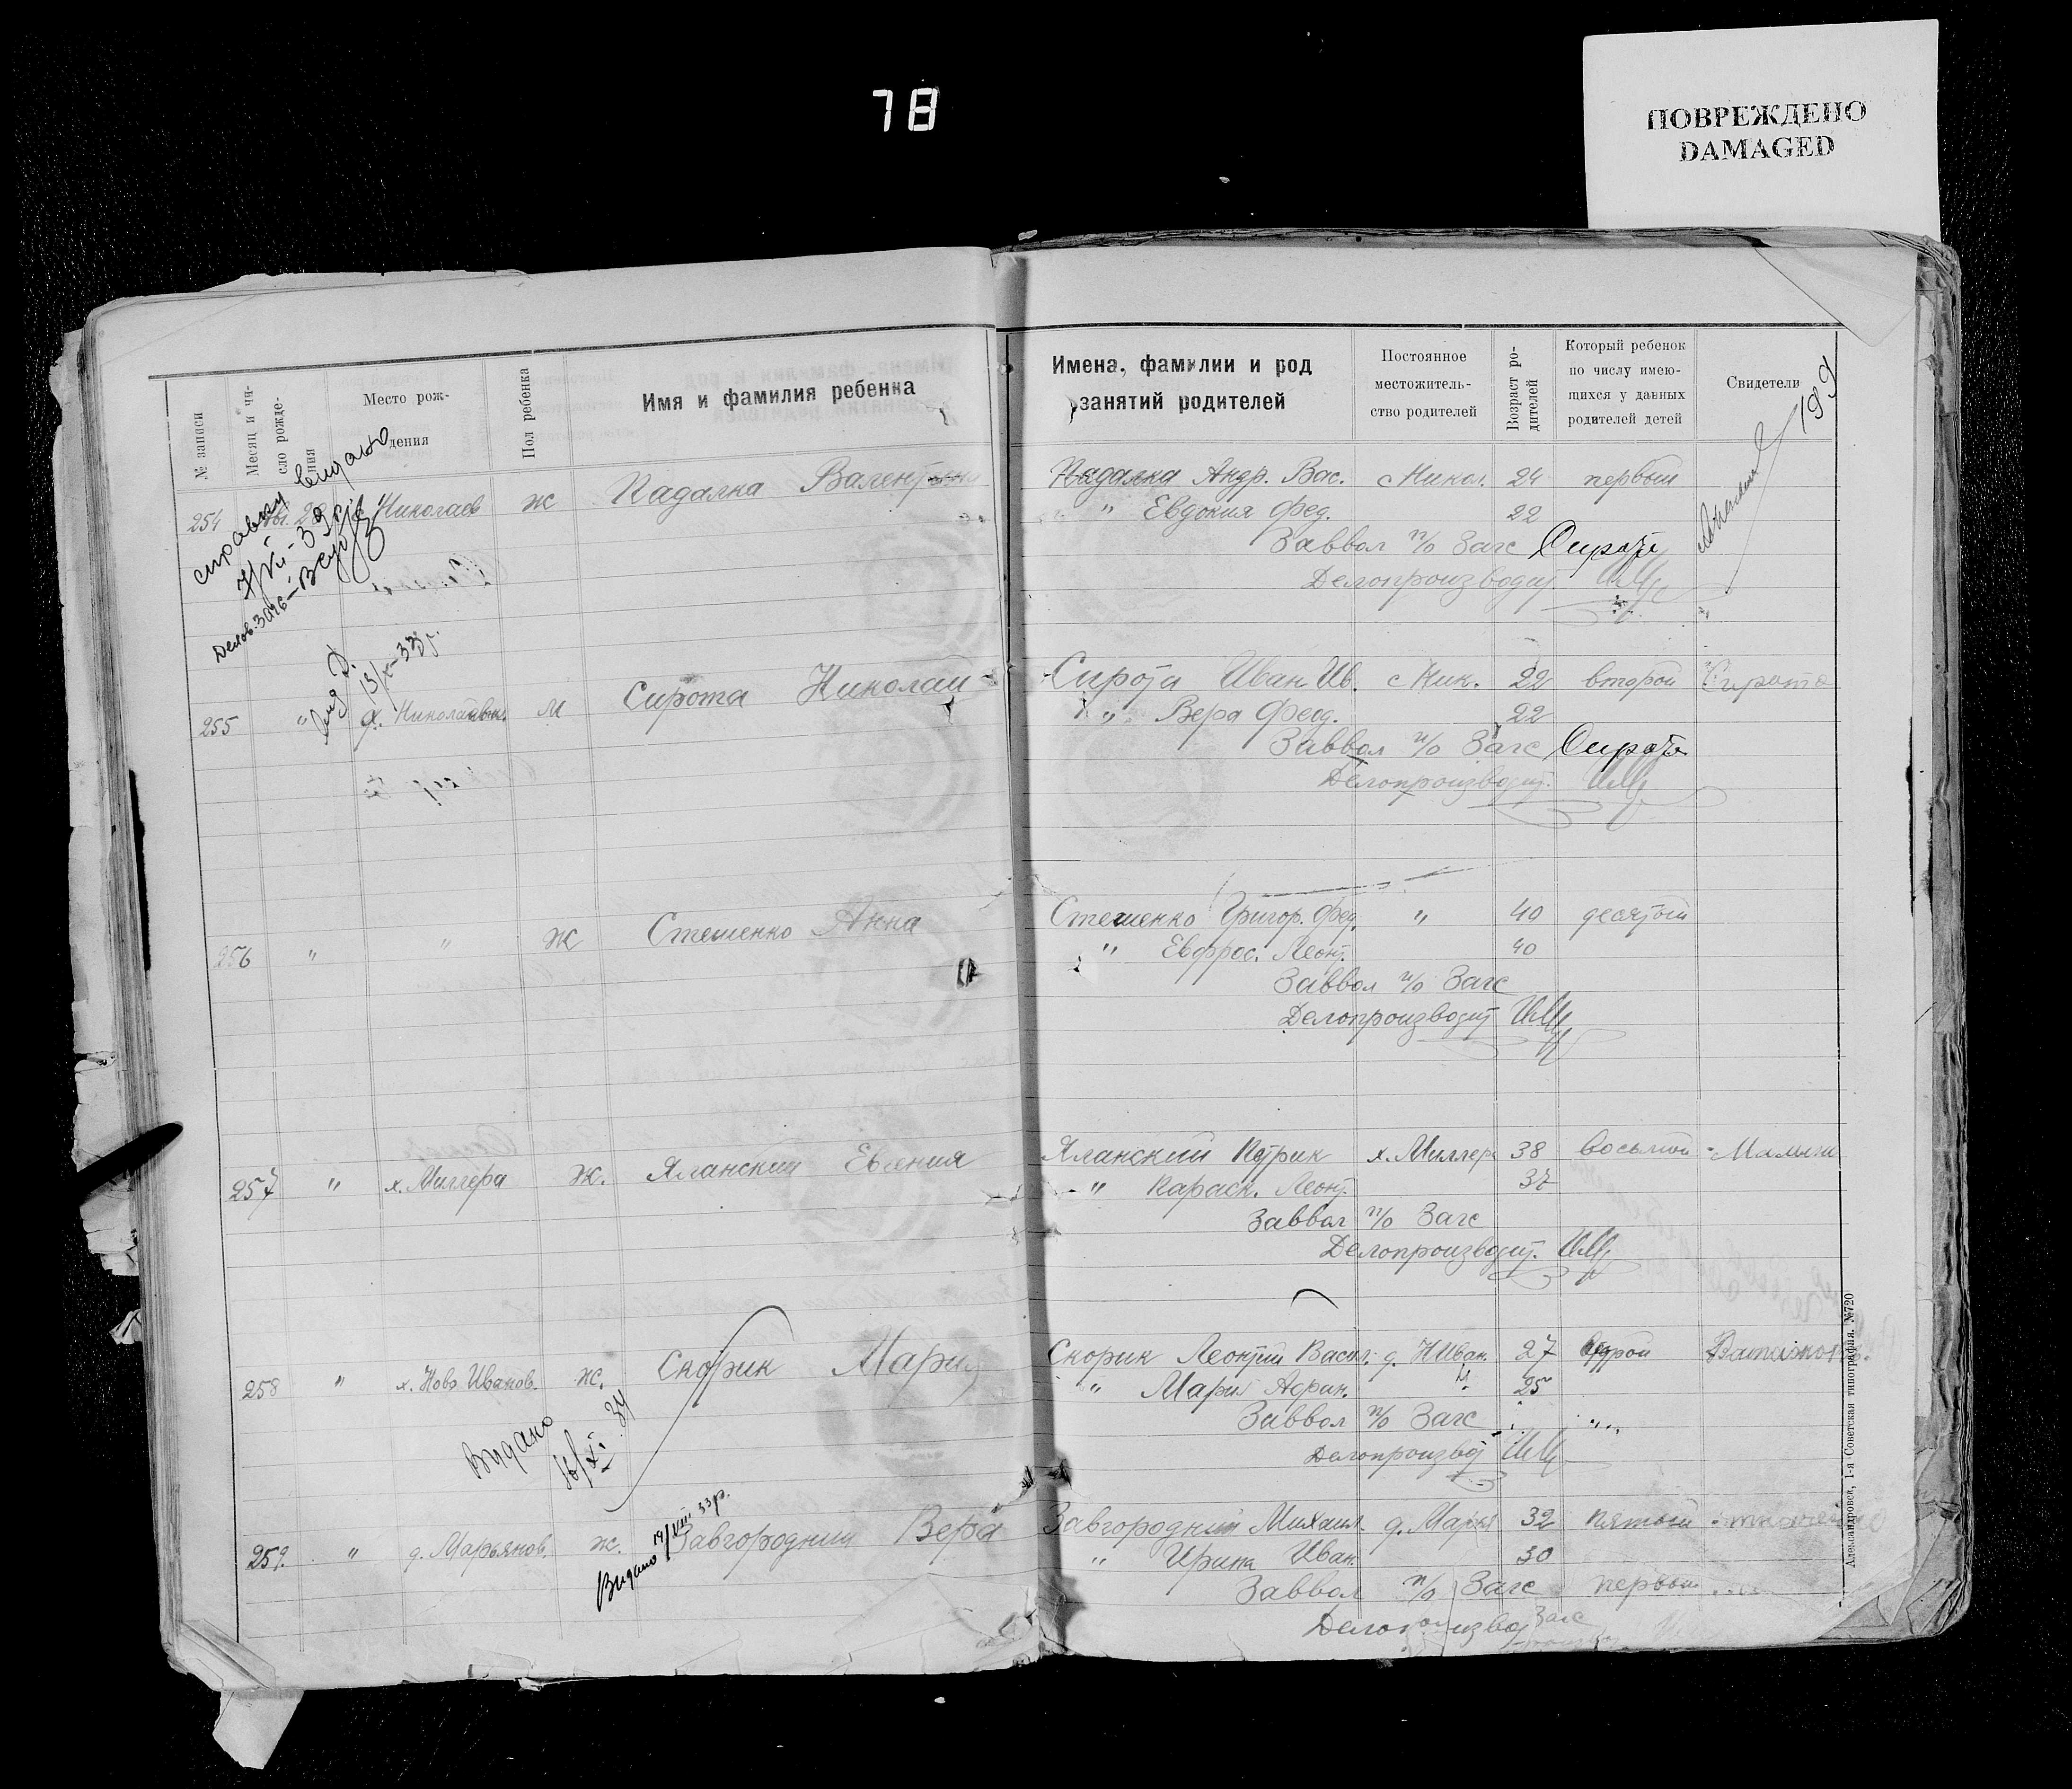 78
ПОВРЕЖДЕНО
DAMAGED
189
№ записи
Месяц и число рождения
Место рождения
Пол ребенка
Имя и фамилия ребенка
Имена, фамилии и род занятий родителей
Постоянное местожительство родителей
Возраст родителей
Который ребенок по числу имеющихся у данных родителей детей
Свидетели
254 28 Николаев ж Падалка Валентина Падалка Андр. Вас. с Никол. 24 первый
" Евдокия Фед. 22
Заввол п/о Загс Сирота
Делопроизводит.
справку видано
7/VII-39
Делов. Загс
Вид. Д.
13/X-33г.
255 " Николаевка. м Сирота Николай Сирота Иван Ив. с Ник. 22 второй Сирота
" Вера Феод. 22
Заввол п/о Загс Сирота
Делопроизводит.
256 " " ж Стешенко Анна Стешенко Григор. Фед. " 40 десятый
" Евфрос. Леонт. 40
Заввол п/о Загс
Делопроизводит
257 " х. Миллера ж. Яланский Евгения Яланский Патрик х. Миллер 38 восьмой
" Параск. Леонт. 37
Заввол п/о Загс
Делопроизводит.
258 " х. Ново Иванов. ж. Скорик Мария Скорик Леонтий Васил. д. Н Иван. 27 второй
" Мария Адриан. " 25
Заввол п/о Загс
Делопроизвод
Видано
16/XI-34
259. " д. Марьянов. ж. Завгородний Вера Завгородний Михаил. д. Марья 32 пятый
Видано 19/VIII 33р.
" Ирина Иван. 30
Заввол п/о Загс первый
Делопроизвод Загс
Александровск, 1-я Советская типография. №720